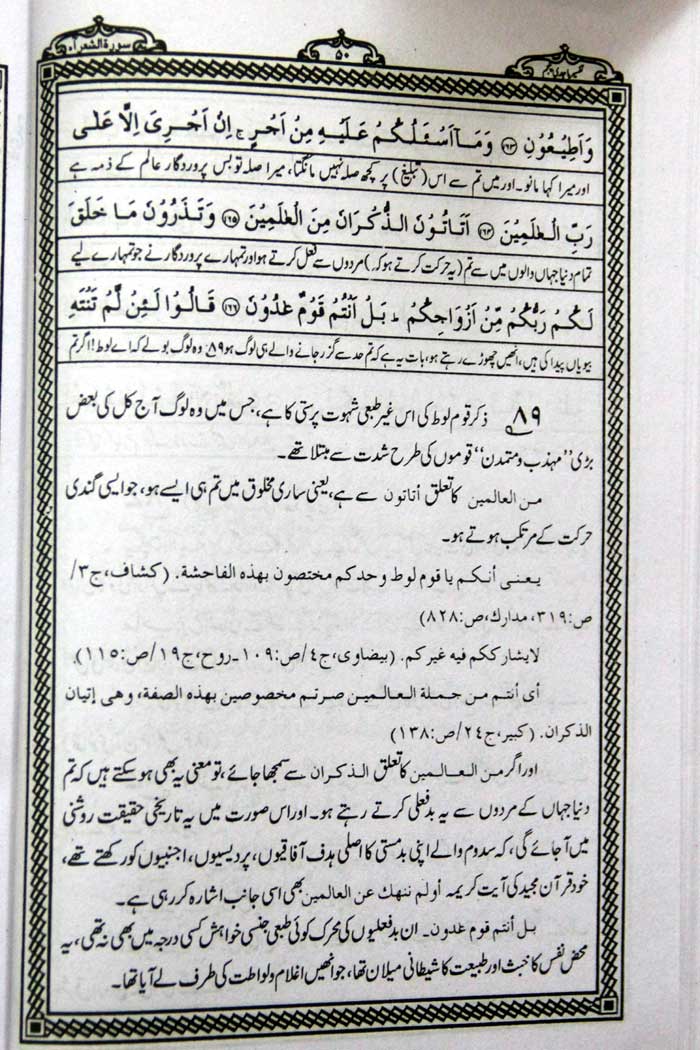 سورة الشعراء
۵۰
وَاَطِيْعُوْنِ ﴿۱۶۳﴾ وَمَآ اَسْـَٔلُكُمْ عَلَيْهِ مِنْ اَجْرٍ ج اِنْ اَجْرِىَ اِلَّا عَلٰى
اور میرا کہا مانو۔ اور میں تم سے اس (تبلیغ) پر کچھ صلہ نہیں مانگتا، میرا صلہ تو بس پروردگار عالم کے ذمہ ہے
رَبِّ الْعٰلَمِيْنَ ﴿۱۶۴﴾ اَتَاْتُوْنَ الذُّكْرَانَ مِنَ الْعٰلَمِيْنَ ﴿۱۶۵﴾ وَتَذَرُوْنَ مَا خَلَقَ
تمام دنیا جہاں والوں میں سے تم (یہ حرکت کرتے ہو کہ) مردوں سے فعل کرتے ہو اور تمہارے پروردگار نے جو تمہارے لیے
لَكُمْ رَبُّكُمْ مِّنْ اَزْوَاجِكُمْ ط بَلْ اَنْتُمْ قَوْمٌ عٰدُوْنَ ﴿۱۶۶﴾ قَالُوْا لَئِنْ لَّمْ تَنْتَهِ
بیویاں پیدا کی ہیں، انھیں چھوڑے رہتے ہو، بات یہ ہے کہ تم حد سے گزر جانے والے ہی لوگ ہو ۸۹ وہ لوگ بولے کہ اے لوط! اگر تم
۸۹ ذکر قوم لوط کی اس غیر طبعی شہوت پرستی کا ہے، جس میں وہ لوگ آج کل کی بعض
بڑی ”مہذب و متمدن“ قوموں کی طرح شدت سے مبتلا تھے۔
من العالمين کا تعلق أتاتون سے ہے، یعنی ساری مخلوق میں تم ہی ایسے ہو، جو ایسی گندی
حرکت کے مرتکب ہوتے ہو۔
يعنى أنكم يا قوم لوط وحدكم مختصون بهذه الفاحشة. (كشاف، ج۳/
ص:۳۱۹، مدارك، ص:۸۲۸)
لايشارككم فيه غيركم. (بيضاوى، ج۴/ص:۱۰۹۔ روح، ج۱۹/ص:۱۱۵).
أى أنتم من جملة العالمين صرتم مخصوصين بهذه الصفة، وهى إتيان
الذكران. (كبير، ج۲۴/ص:۱۳۸)
اور اگر من العالمين کا تعلق الذكران سے سمجھا جائے، تو معنی یہ بھی ہو سکتے ہیں کہ تم
دنیا جہاں کے مردوں سے یہ بدفعلی کرتے رہتے ہو۔ اور اس صورت میں یہ تاریخی حقیقت روشنی
میں آجائے گی، کہ سدوم والے اپنی بدمستی کا اصلی ہدف آفاقیوں، پردیسیوں، اجنبیوں کو رکھتے تھے،
خود قرآن مجید کی آیت کریمہ أولم ننهك عن العالمين بھی اسی جانب اشارہ کر رہی ہے۔
بل أنتم قوم عدون۔ ان بدفعلیوں کی محرک کوئی طبعی جنسی خواہش کسی درجہ میں بھی نہ تھی، یہ
محض نفس کا خبث اور طبیعت کا شیطانی میلان تھا، جو انھیں اغلام ولواطت کی طرف لے آیا تھا۔